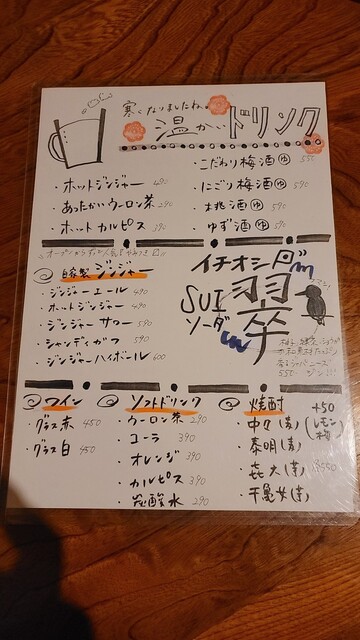 寒くなりましたね。
温かいドリンク
・こだわり梅酒ゆ 550
・ホットジンジャー 490
・にごり梅酒ゆ 590
・あったかいウーロン茶 290
・桃酒ゆ 590
・ホットカルピス 390
・ゆず酒ゆ 590
自家製ジンジャー
・ジンジャーエール 490
・ホットジンジャー 490
・ジンジャーサワー 590
・シャンディガフ 590
・ジンジャーハイボール 600
イチオシ
翠
SUI
ソーダ
ワイン
・グラス赤 450
・グラス白 450
ソフトドリンク
・ウーロン茶 290
・コーラ 390
・オレンジ 390
・カルピス 390
・炭酸水 290
焼酎
+50
レモン
梅
・中々(麦)
・泰明(麦)
・㐂六(芋) 550
・干亀女(芋)